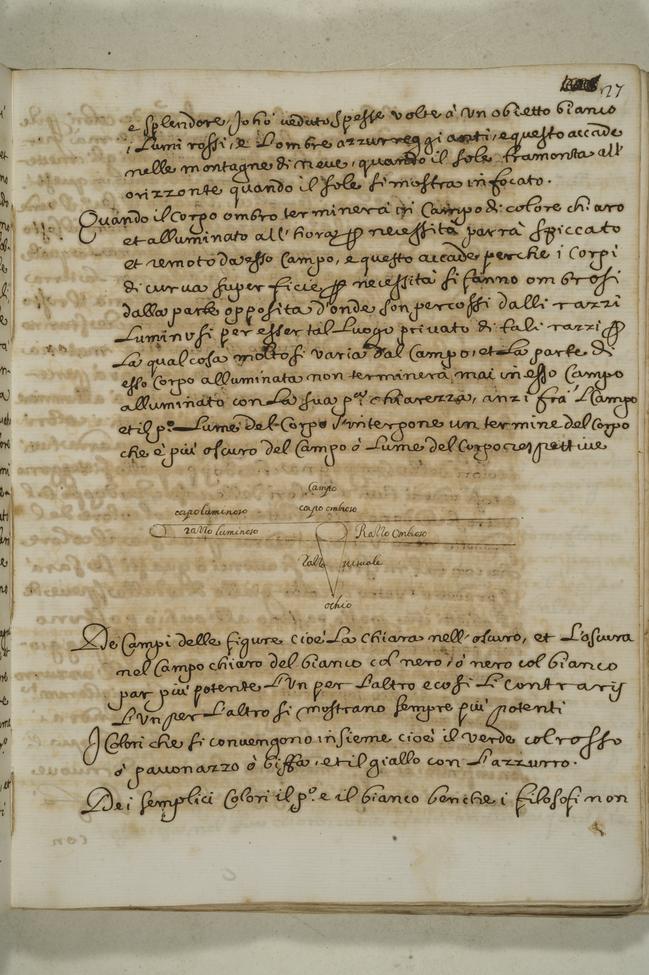 27
e splendore, Jo hò veduto spesse volte à un obietto bianco
i Lumi rossi, e L'ombre azzurreggianti, e questo accade
nelle montagne di neve, quando il sole tramonta all'
orizzonte quando il sole si mostra infocato.
Quando il Corpo ombro terminerà in Campo di colore chiaro
et alluminato all'hora necessità parrà spiccato
et remoto da esso Campo, e questo accade perche i Corpi
di curua superficie necessità si fanno ombrosi
dalla parte opposita d'onde son percossi dalli razzi
Luminosi per esser tal Luogo privato di tali razzi
La qual cosa molto si varia dal Campo, et La parte di
esso Corpo alluminata non terminerà mai in esso Campo
alluminato con La sua pª chiarezza, anzi frà 'l Campo
et il pº Lume del Corpo s'interpone un termine del Corpo
che è più oscuro del Campo ò Lume del Corpo respettive
Campo
corpo luminoso corpo ombroso
razzo luminoso Razzo Ombroso
razzo visuale
ochio
De Campi delle figure cioè La chiara nell'oscuro, et L'oscura
nel Campo chiaro del bianco col nero, ò nero col bianco
par più potente L'Un per L'altro e così Li Contrarij
L'Un per L'altro si mostrano sempre più potenti
J Colori che si convengono insieme cioè il verde col rosso
ò pavonazzo ò biffa, et il giallo con L'azzurro.
Dei semplici Colori il pº e il bianco benche i filosofi non